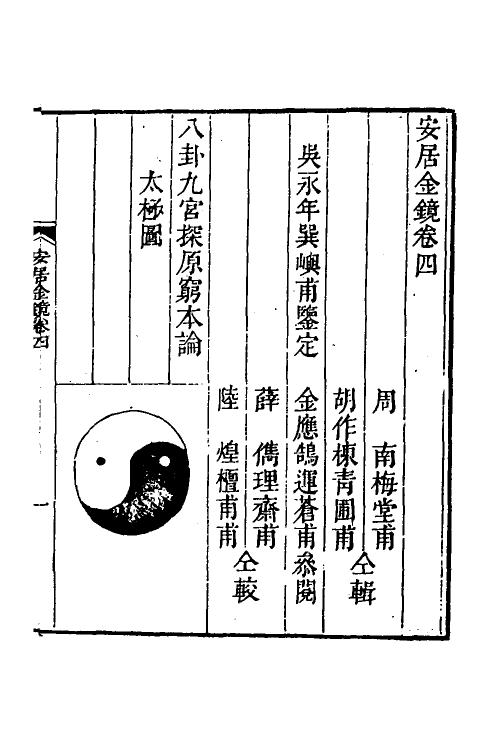 安居金鏡卷四
周　南梅堂甫
胡作棟青圃甫
仝輯
吳永年巽嶼甫鑒定
金應鵠運蒼甫叅閱
薛　儁理齋甫
陸　煌檀甫甫
仝較
八卦九宮探原窮本論
太極圖
安居金鏡卷四
一